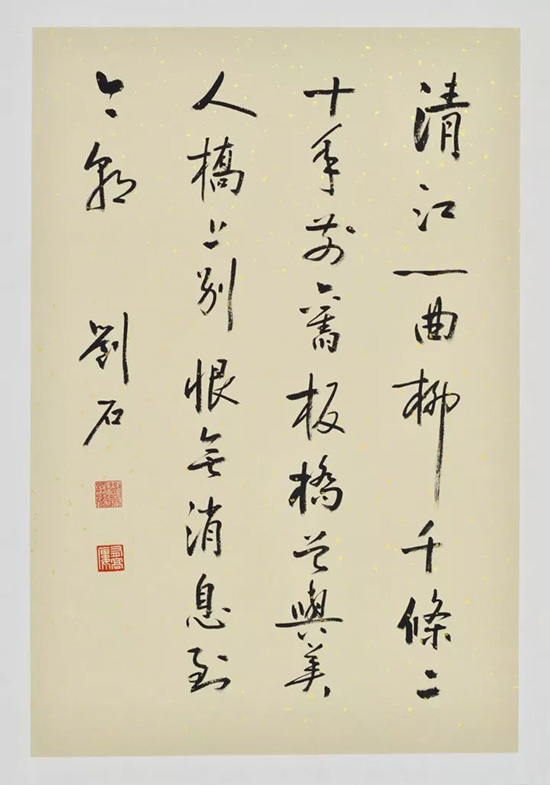 清江一曲柳千條二
十年前舊板橋曾與美
人橋上别恨無消息到
今朝
劉石